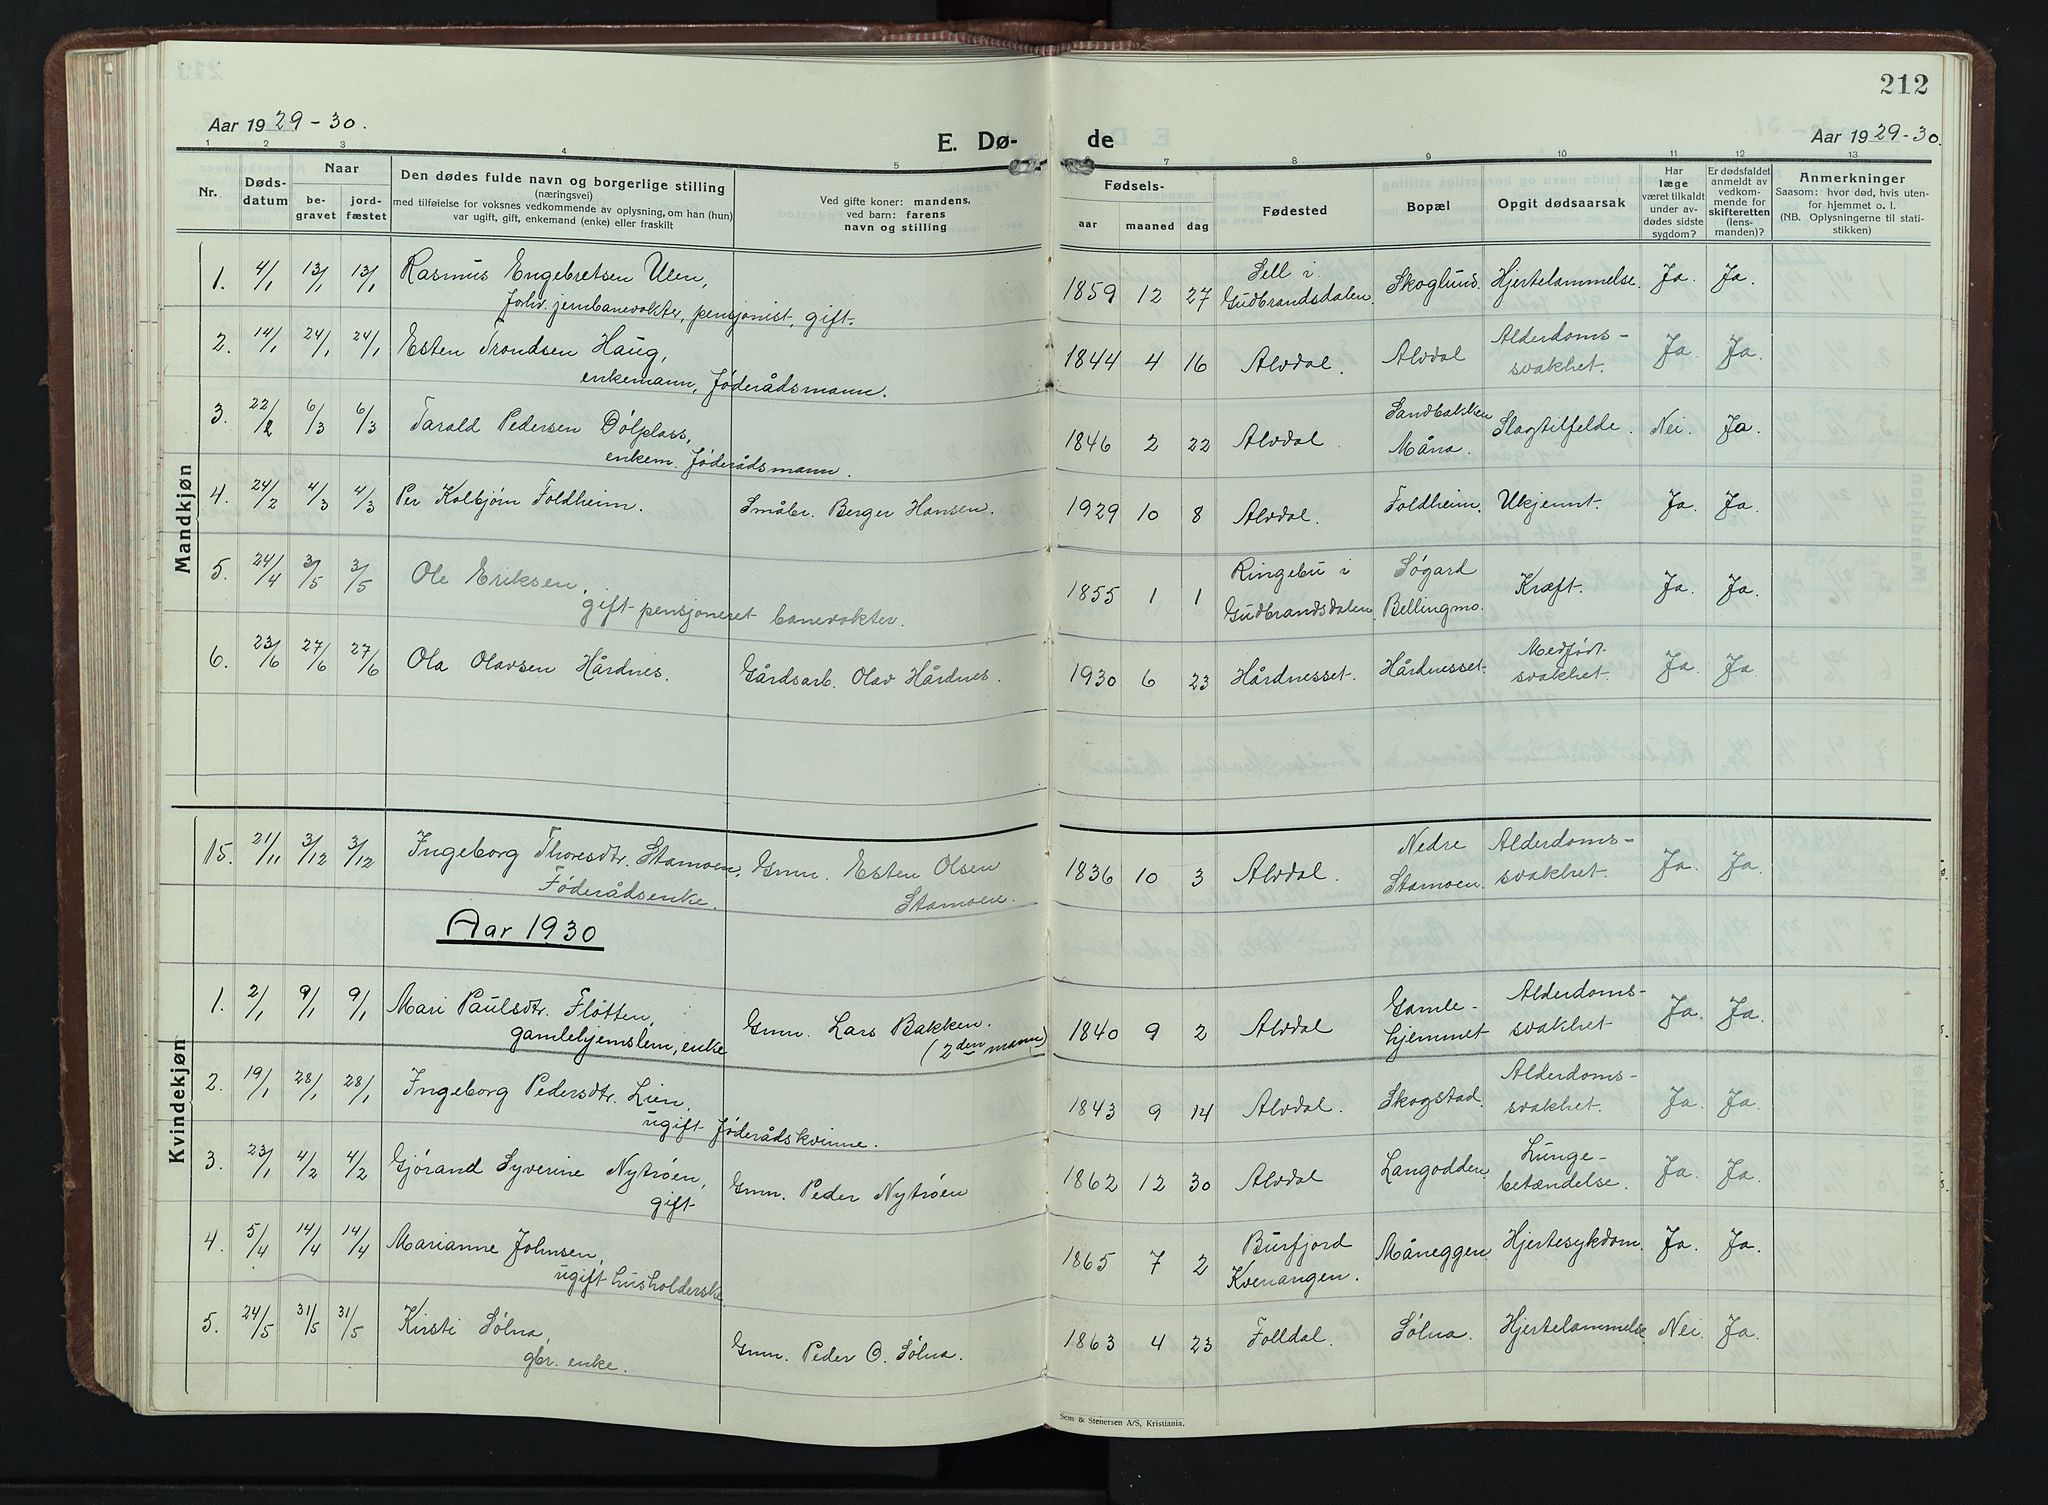 212
Aar 1929-30.
E. Dø-
de
Aar 1929-30.
1 2 3 4 5 7 8 9 10 11 12 13
Nr.
Døds-
datum
Naar
be-
gravet
jord-
fæstet
Den dødes fulde navn og borgerlige stilling
(næringsvei)
med tilføielse for voksnes vedkommende av oplysning, om han (hun)
var ugift, gift, enkemand (enke) eller fraskilt
Ved gifte koner: mandens,
ved barn: farens
navn og stilling
Fødsels-
aar maaned dag
Fødested
Bopæl
Opgit dødsaarsak
Har
læge
været tilkaldt
under av-
dødes sidste
sygdom?
Er dødsfaldet
anmeldt av
vedkom-
mende for
skifteretten
(lens-
manden)?
Anmerkninger
Saasom: hvor død, hvis uten-
for hjemmet o. l.
(NB. Oplysningerne til stati-
stikken)
Mandkjøn
1. 4/1 13/1 13/1 Rasmus Engebretsen Ulen, 1859 12 27 Sell i Skoglund. Hjertelammelse. Ja. Ja.
forhv. jernbanevokter, pensjonist, gift. Gudbrandsdalen.
2. 14/1 24/1 24/1 Esten Trondsen Haug, 1844 4 16 Alvdal. Alvdal Alderdoms- Ja. Ja.
enkemann, føderådsmann. svakhet.
3. 22/2 6/3 6/3 Tarald Pedersen Dølplass, 1846 2 22 Alvdal. Sandbakken Slagtilfelde. Nei. Ja.
enkem. føderådsmann. Måna.
4. 24/2 4/3 4/3 Per Kolbjørn Foldheim. Småbr. Berger Hansen. 1929 10 8 Alvdal. Foldheim. Ukjennt. Ja. Ja.
5. 24/4 3/5 3/5 Ole Eriksen, 1855 1 1 Ringebu i Søgard Kræft. Ja. Ja.
gift pensjoneret banevokter. Gudbrandsdalen. Bellingmo.
6. 23/6 27/6 27/6 Ola Olavsen Hårdnes. Gårdsarb. Olav Hårdnes. 1930 6 23 Hårdnesset. Hårdnesset. Medfødt Ja. Ja.
svakhet.
Kvindekjøn
15. 21/11 3/12 3/12 Ingeborg Thoresdtr. Stamoen, Gmn. Esten Olsen 1836 10 3 Alvdal. Nedre Alderdoms- Ja. Ja.
Føderådsenke. Stamoen. Stamoen. svakhet.
Aar 1930
1. 2/1 9/1 9/1 Mari Paulsdtr. Fløtten, Gmn. Lars Bakken. 1840 9 2 Alvdal Gamle- Alderdoms- Ja. Ja.
gamlehjemslem, enke (2den mann) hjemmet svakhet
2. 19/1 28/1 28/1 Ingeborg Pedersdtr. Lien, 1843 9 14 Alvdal. Skogstad. Alderdoms- Ja. Ja.
ugift føderådskvinne. svakhet.
3. 23/1 4/2 4/2 Gjørand Syverine Nytrøen, Gmn. Peder Nytrøen 1862 12 30 Alvdal Langodden. Lunge- Ja. Ja.
gift betændelse.
4. 5/4 14/4 14/4 Marianne Johnsen, 1865 7 2 Burfjord Måneggen. Hjertesykdom. Ja. Ja.
ugift husholderske. Kvenangen.
5. 24/5 31/5 31/5 Kirsti Sølna, Gmn. Peder O. Sølna. 1863 4 23 Folldal. Sølna. Hjertelammelse. Nei. Ja.
gbr. enke.
Sem & Stenersen A/S, Kristiania.